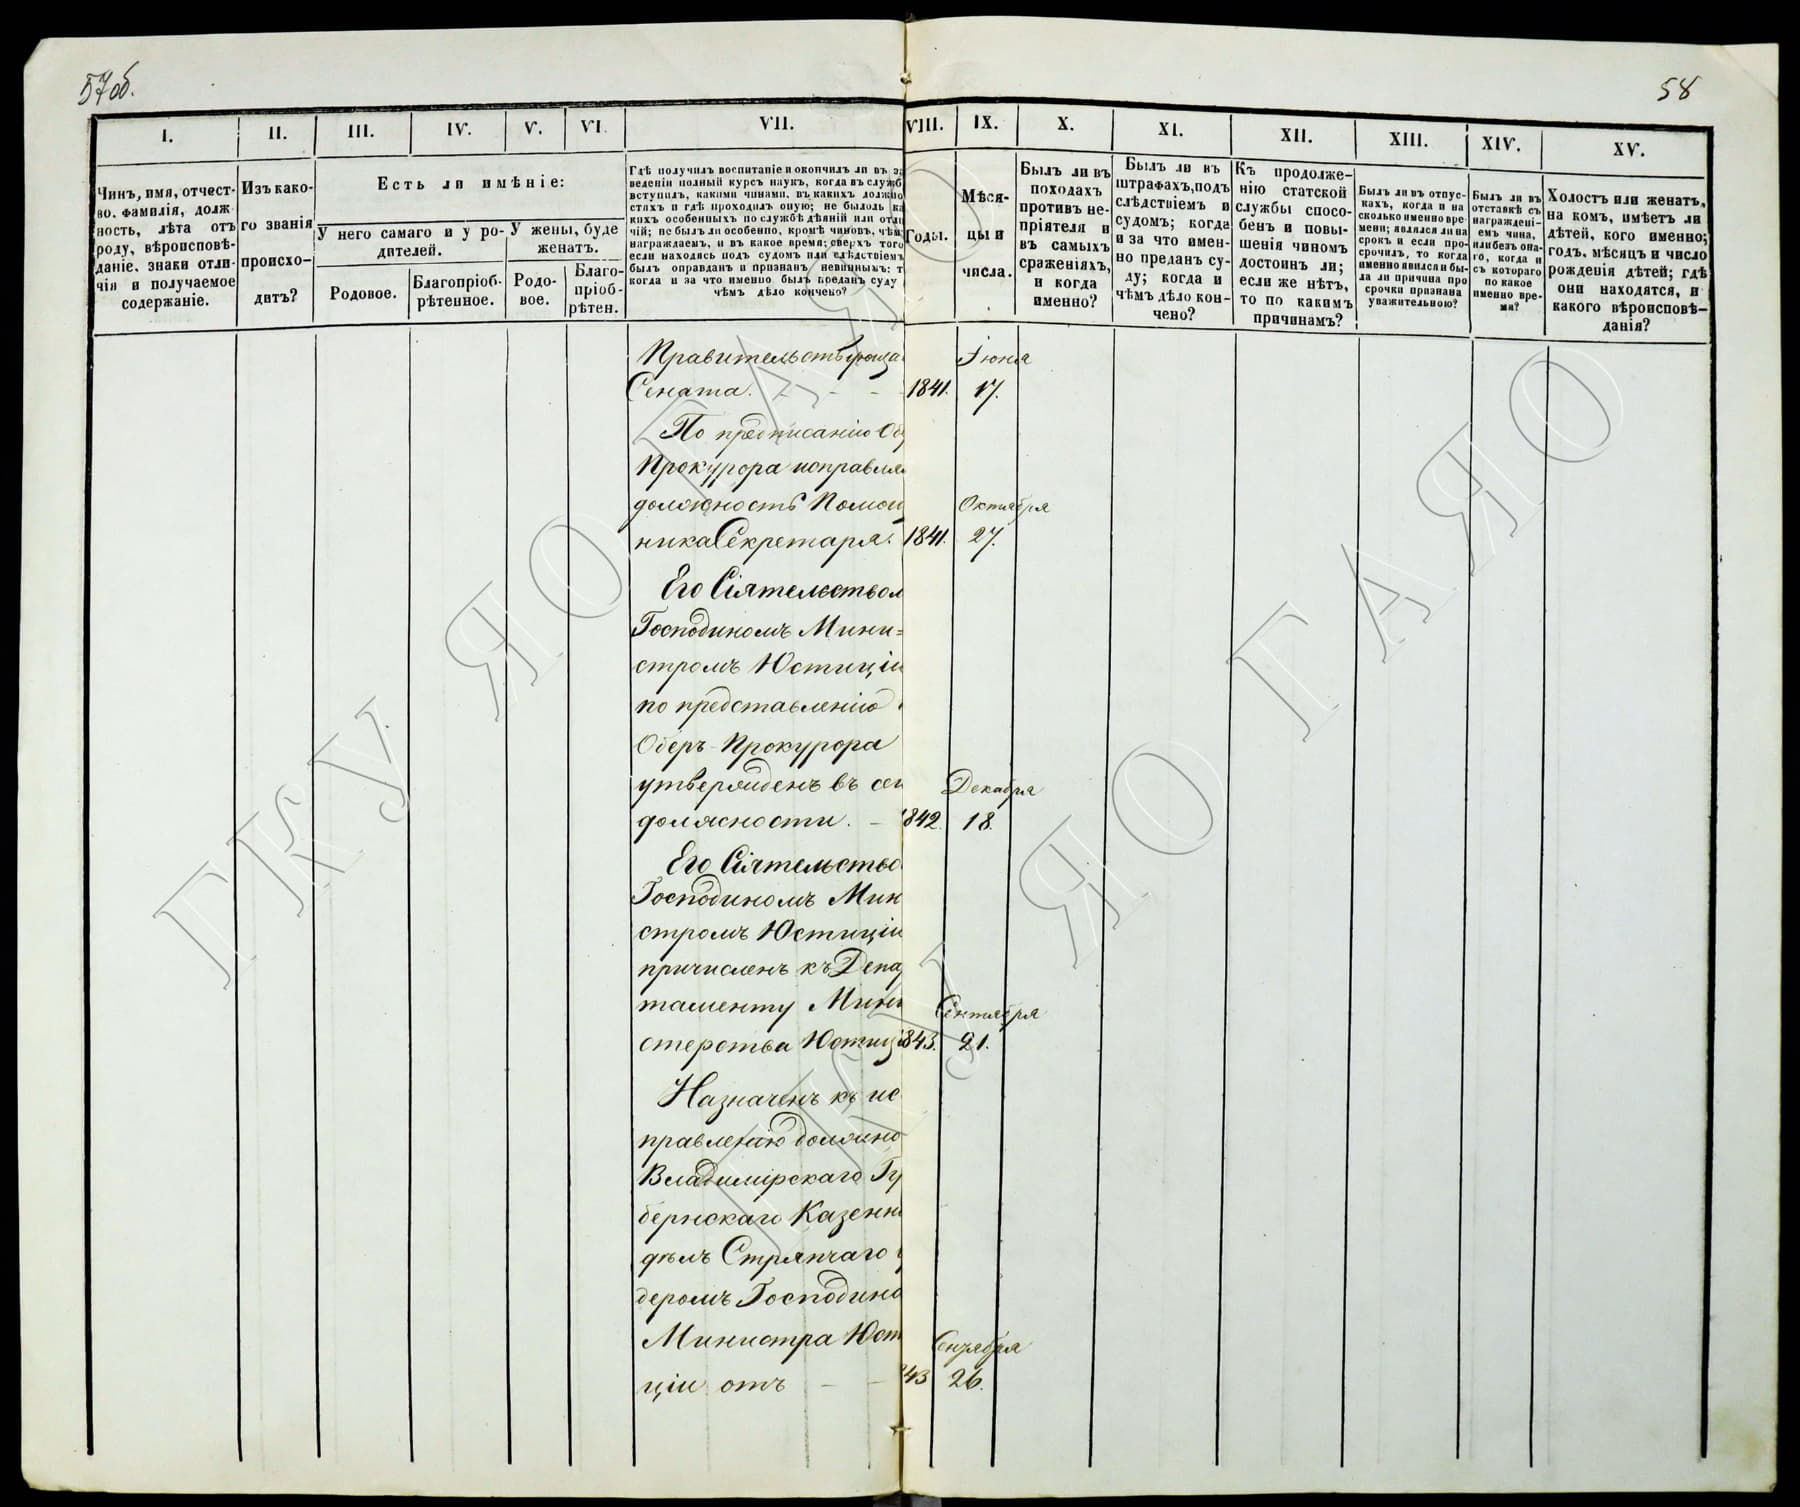 57 об.
58
I.
II.
III.
IV.
V.
VI.
VII.
VIII.
IX.
X.
XI.
XII.
XIII.
XIV.
XV.
Чинъ, имя, отчест-
во, фамилія, долж
ность, лѣта отъ
роду, вѣроисповѣ-
даніе, знаки отли-
чія и получаемое
содержаніе.
Изъ како-
го званія
происхо-
дитъ?
Есть ли имѣніе:
У него самаго и у ро-
дителей.
У жены, буде
женатъ.
Родовое.
Благопріоб-
рѣтенное.
Родо-
вое.
Благо-
пріоб-
рѣтен.
Гдѣ получилъ воспитаніе и окончилъ ли въ за
веденіи полный курсъ наукъ, когда въ служб
вступилъ, какими чинами, въ какихъ должно
стяхъ и гдѣ проходилъ оную; не былолъ ка
кихъ особенныхъ по службѣ дѣяній или отли
чій; не былъ ли особенно, кромѣ чиновъ, чѣм
награждаемъ, и въ какое время; сверхъ того
если находясь подъ судомъ или слѣдствіемъ
былъ оправданъ и признанъ невиннымъ: т
когда и за что именно былъ преданъ суду
чѣмъ дѣло кончено?
Годы.
Мѣся-
цы и
числа.
Былъ ли въ
походахъ
противъ не-
пріятеля и
въ самыхъ
сраженіяхъ,
и когда
именно?
Былъ ли въ
штрафахъ, подъ
слѣдствіемъ и
судомъ; когда
и за что имен-
но преданъ су-
ду; когда и
чѣмъ дѣло кон-
чено?
Къ продолже-
нію статской
службы спосо-
бенъ и повы-
шенія чиномъ
достоинъ ли;
если же нѣтъ,
то по какимъ
причинамъ?
Былъ ли въ отпус-
кахъ, когда и на
сколько именно вре-
мени; являлся ли на
срокъ и если про-
срочилъ, то когда
именно явился и бы-
ла ли причина про
срочки признана
уважительною?
Былъ ли въ
отставкѣ съ
награждені-
емъ чина,
или безъ она-
го, когда и
съ котораго
по какое
именно вре-
мя?
Холостъ или женатъ,
на комъ, имѣетъ ли
дѣтей, кого именно;
годъ, мѣсяцъ и число
рожденія дѣтей; гдѣ
они находятся, и
какого вѣроисповѣ-
данія?
Правительствующа
Іюня
Сената. 1841. 17.
По предписанію Об
Прокурора исправля
должность Помощ
Октября
ника Секретаря. 1841. 27.
Его Сіятельством
Господиномъ Мини=
стромъ Юстиціи
по представленію
Оберъ-Прокурора
утвержденъ въ сей
Декабря
должности. 1842. 18.
Его Сіятельство
Господиномъ Мин
стромъ Юстиціи
причисленъ къ Депар
таменту Мини
Сентября
стерства Юстиці 843. 21.
Назначенъ къ ис
правленію должно
Владимірскаго Гу
бернскаго Казенн
дѣлъ Стряпчаго
деромъ Господина
Министра Юст
Сентября
ціи отъ 43 26.
ГКУ ЯО ГАЯО
ГКУ ЯО ГАЯО